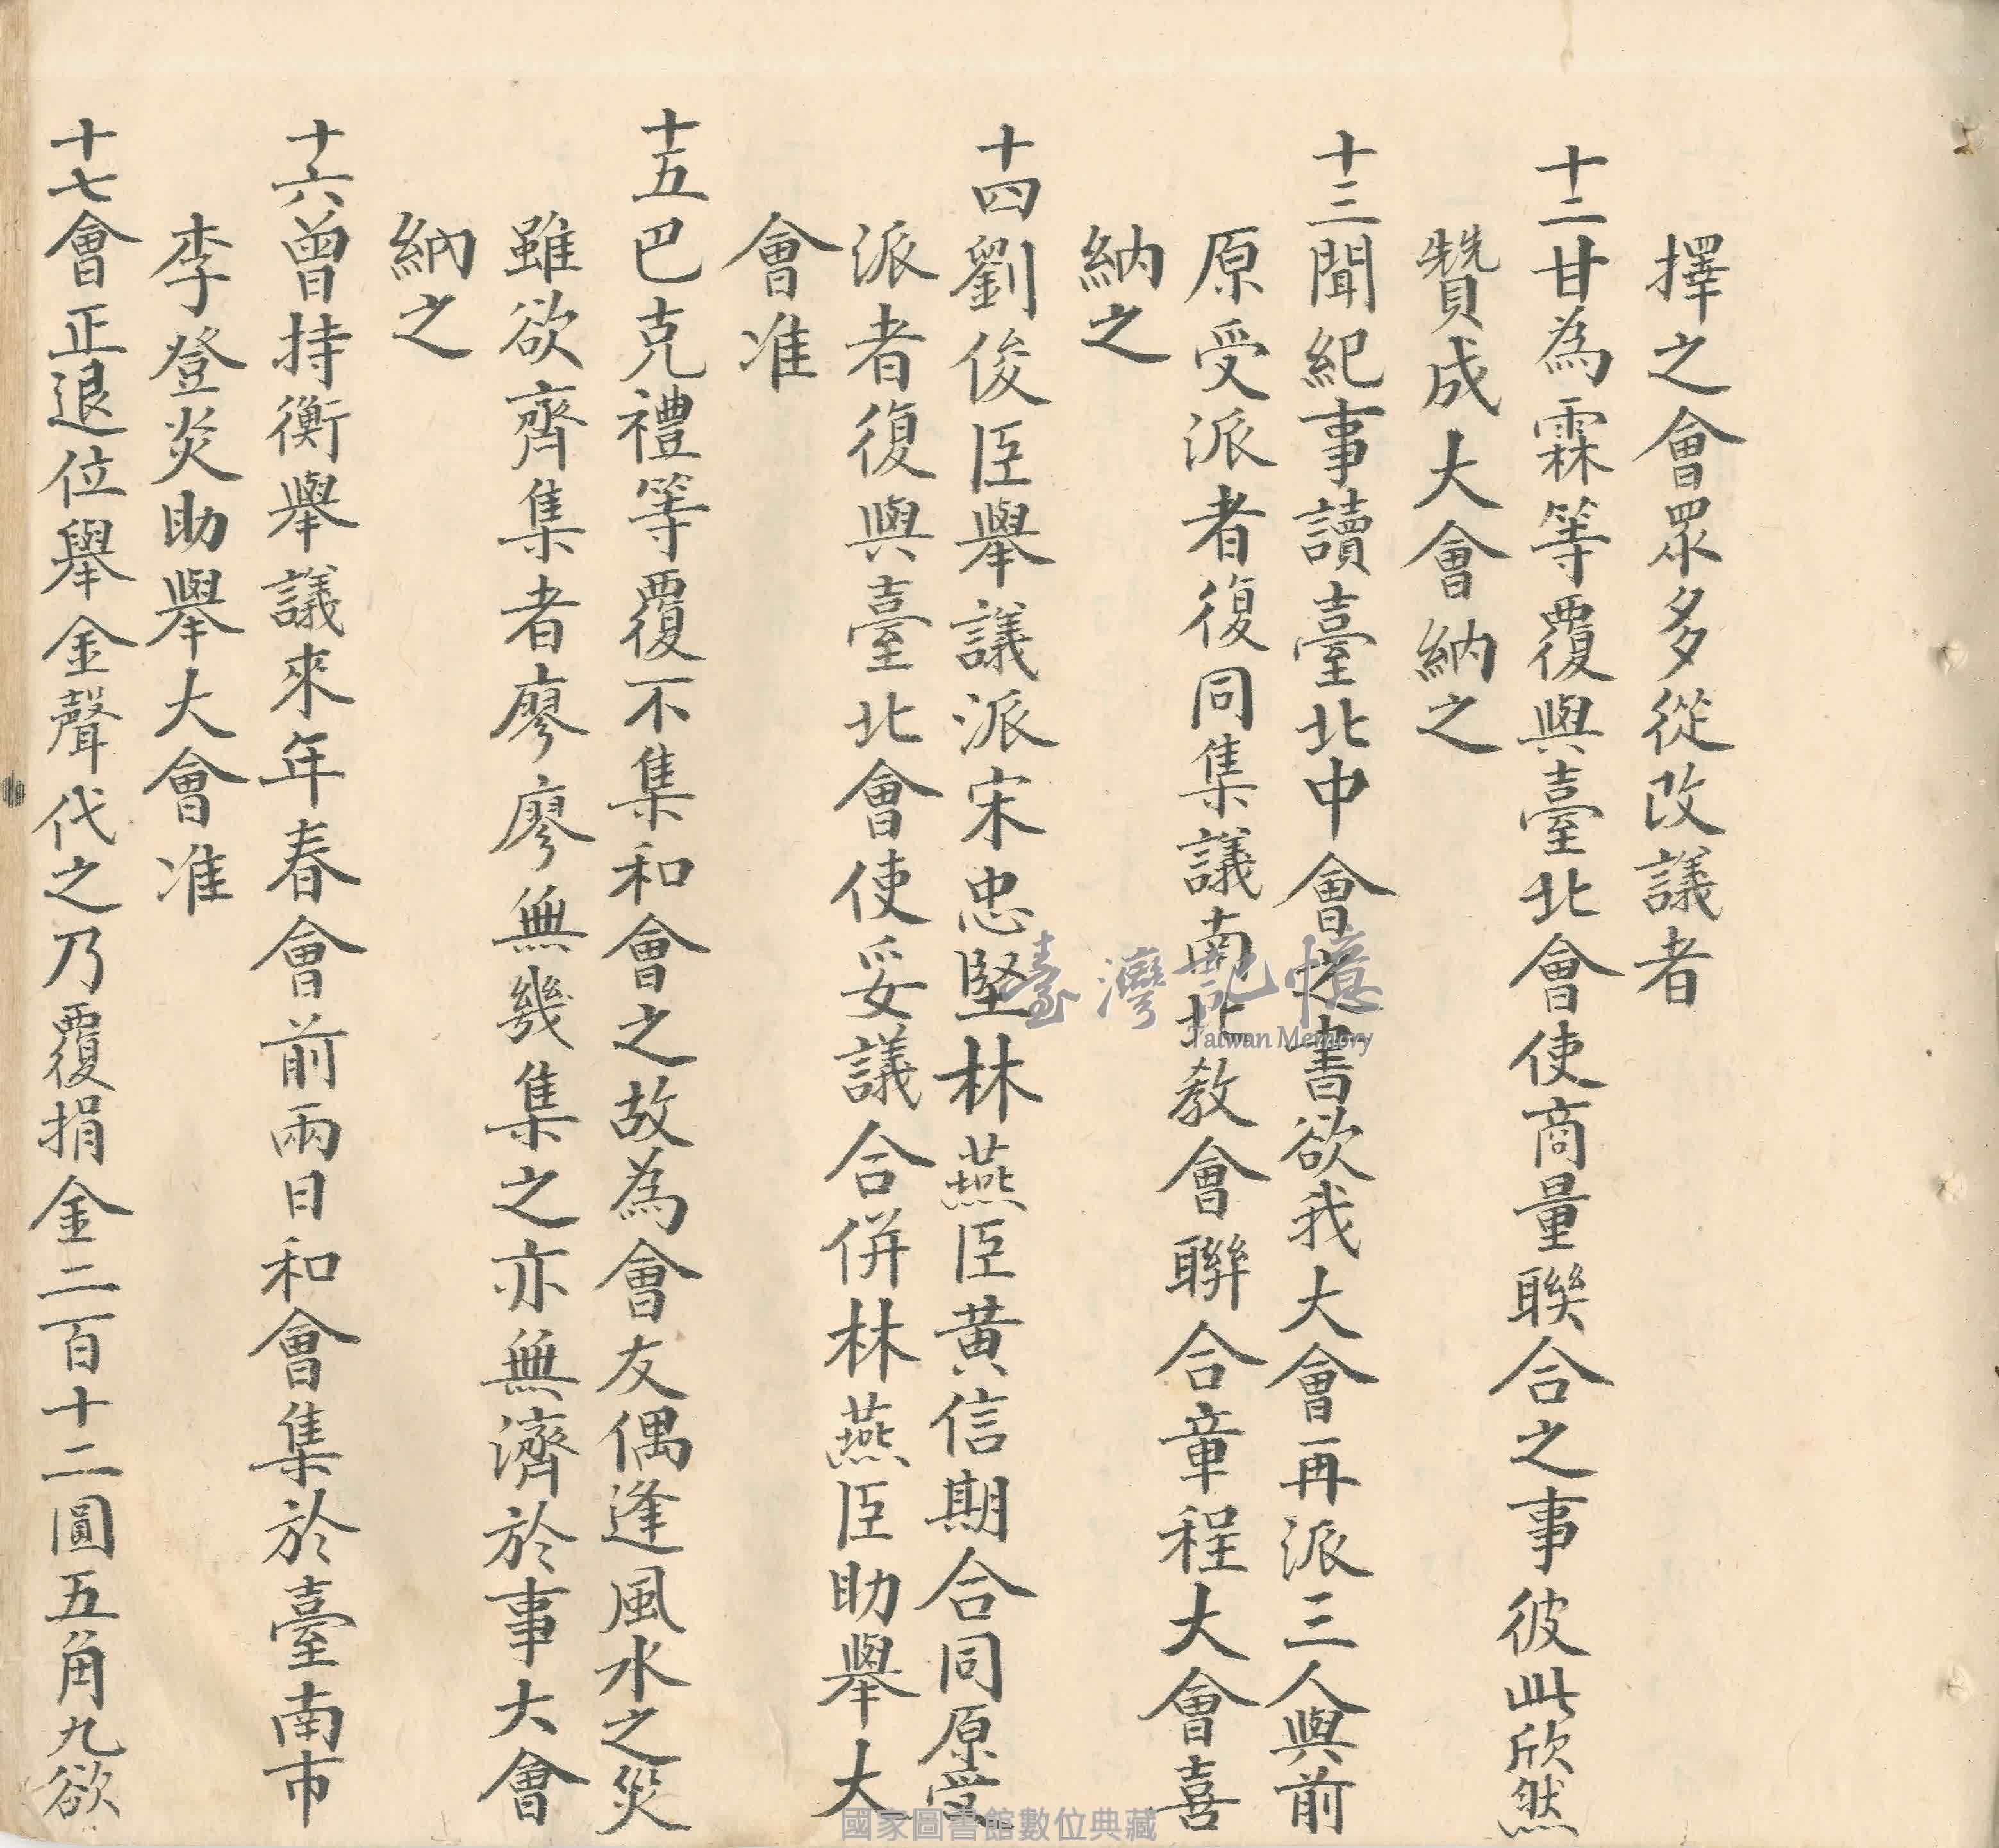 擇之會眾多從改議者
十二甘為霖等覆與臺北會使商量聯合之事彼此欣然
贊成大會納之
十三聞紀事讀臺北中會之書欲我大會再派三人與前
原受派者復同集議南北教會聯合章程大會喜
納之
十四劉俊臣舉議派宋忠堅林燕臣黃信期合同原受
派者復與臺北會使妥議合併林燕臣助舉大
會准
十五巴克禮等覆不集和會之故為會友偶逢風水之災
雖欲齊集者廖廖無幾集之亦無濟於事大會
納之
十六曾持衡舉議來年春會前兩日和會集於臺南市
李登炎助舉大會准
十七會正退位舉金聲代之乃覆捐金二百十二圓五角九欲
臺灣記憶
Taiwan Memory
國家圖書館數位典藏